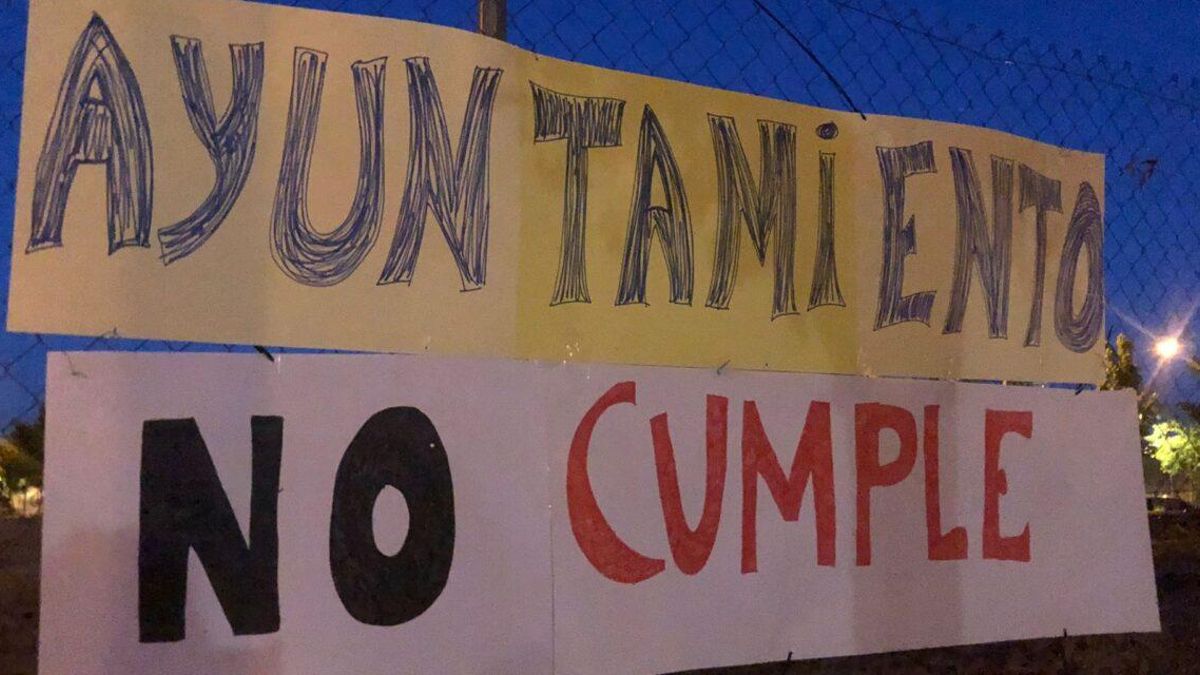 AYUNTAMiENTO
NO CUMPLE